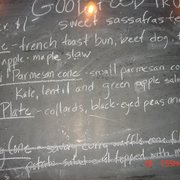 GOOD FOOD TRU
sweet sassafras te
- french toast bun, beef dog
apple - maple slaw
Parmesan Cone - small parmesan co
Kale, lentil and green apple sala
Plate - collards, black-eyed peas an
Cone - savory curry waffle cone f
potato salad topped with m